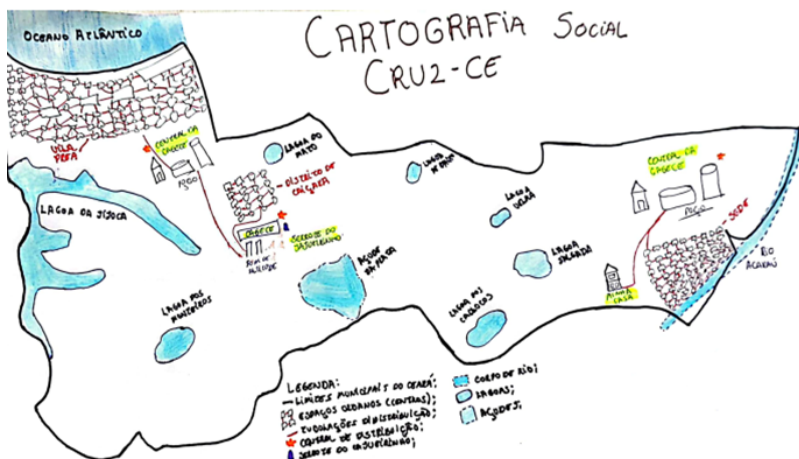 OCEANO ATLÂNTICO
CARTOGRAFIA SOCIAL
CRUZ-CE
VILA
PREÁ
CENTRAL DA
CAGECE
POÇO
LAGOA DA JIJOCA
LAGOA DO
MATO
DISTRITO DE
CAIÇARA
CAGECE
SERROTE DO
CAJUEIRINHO
LAGOA DOS
MONTEIROS
AÇUDE
DA PRATA
LAGOA
LAGOA
VELHA
LAGOA
SALGADA
LAGOA DOS
CENTRAL DA
CAGECE
POÇO
SEDE
MINHA
CASA
RIO
ACARAÚ
LEGENDA:
LIMITES MUNICIPAIS DO CEARÁ;
ESPAÇOS URBANOS (CENTROS);
TUBULAÇÕES DE DISTRIBUIÇÃO;
CENTRAL DE DISTRIBUIÇÃO;
SERROTE DO CAJUEIRINHO;
CORPO DE RIO;
LAGOAS;
AÇUDES;